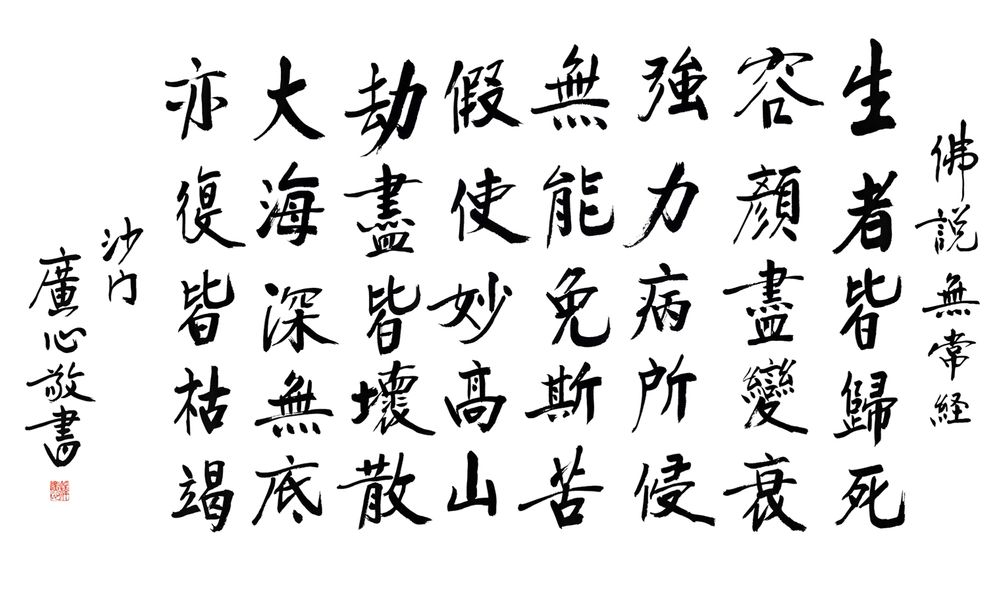 佛説無常経
生者皆歸死
容顔盡變衰
強力病所侵
無能免斯苦
假使妙高山
劫盡皆壞散
大海深無底
亦復皆枯竭
沙门
廣心敬書